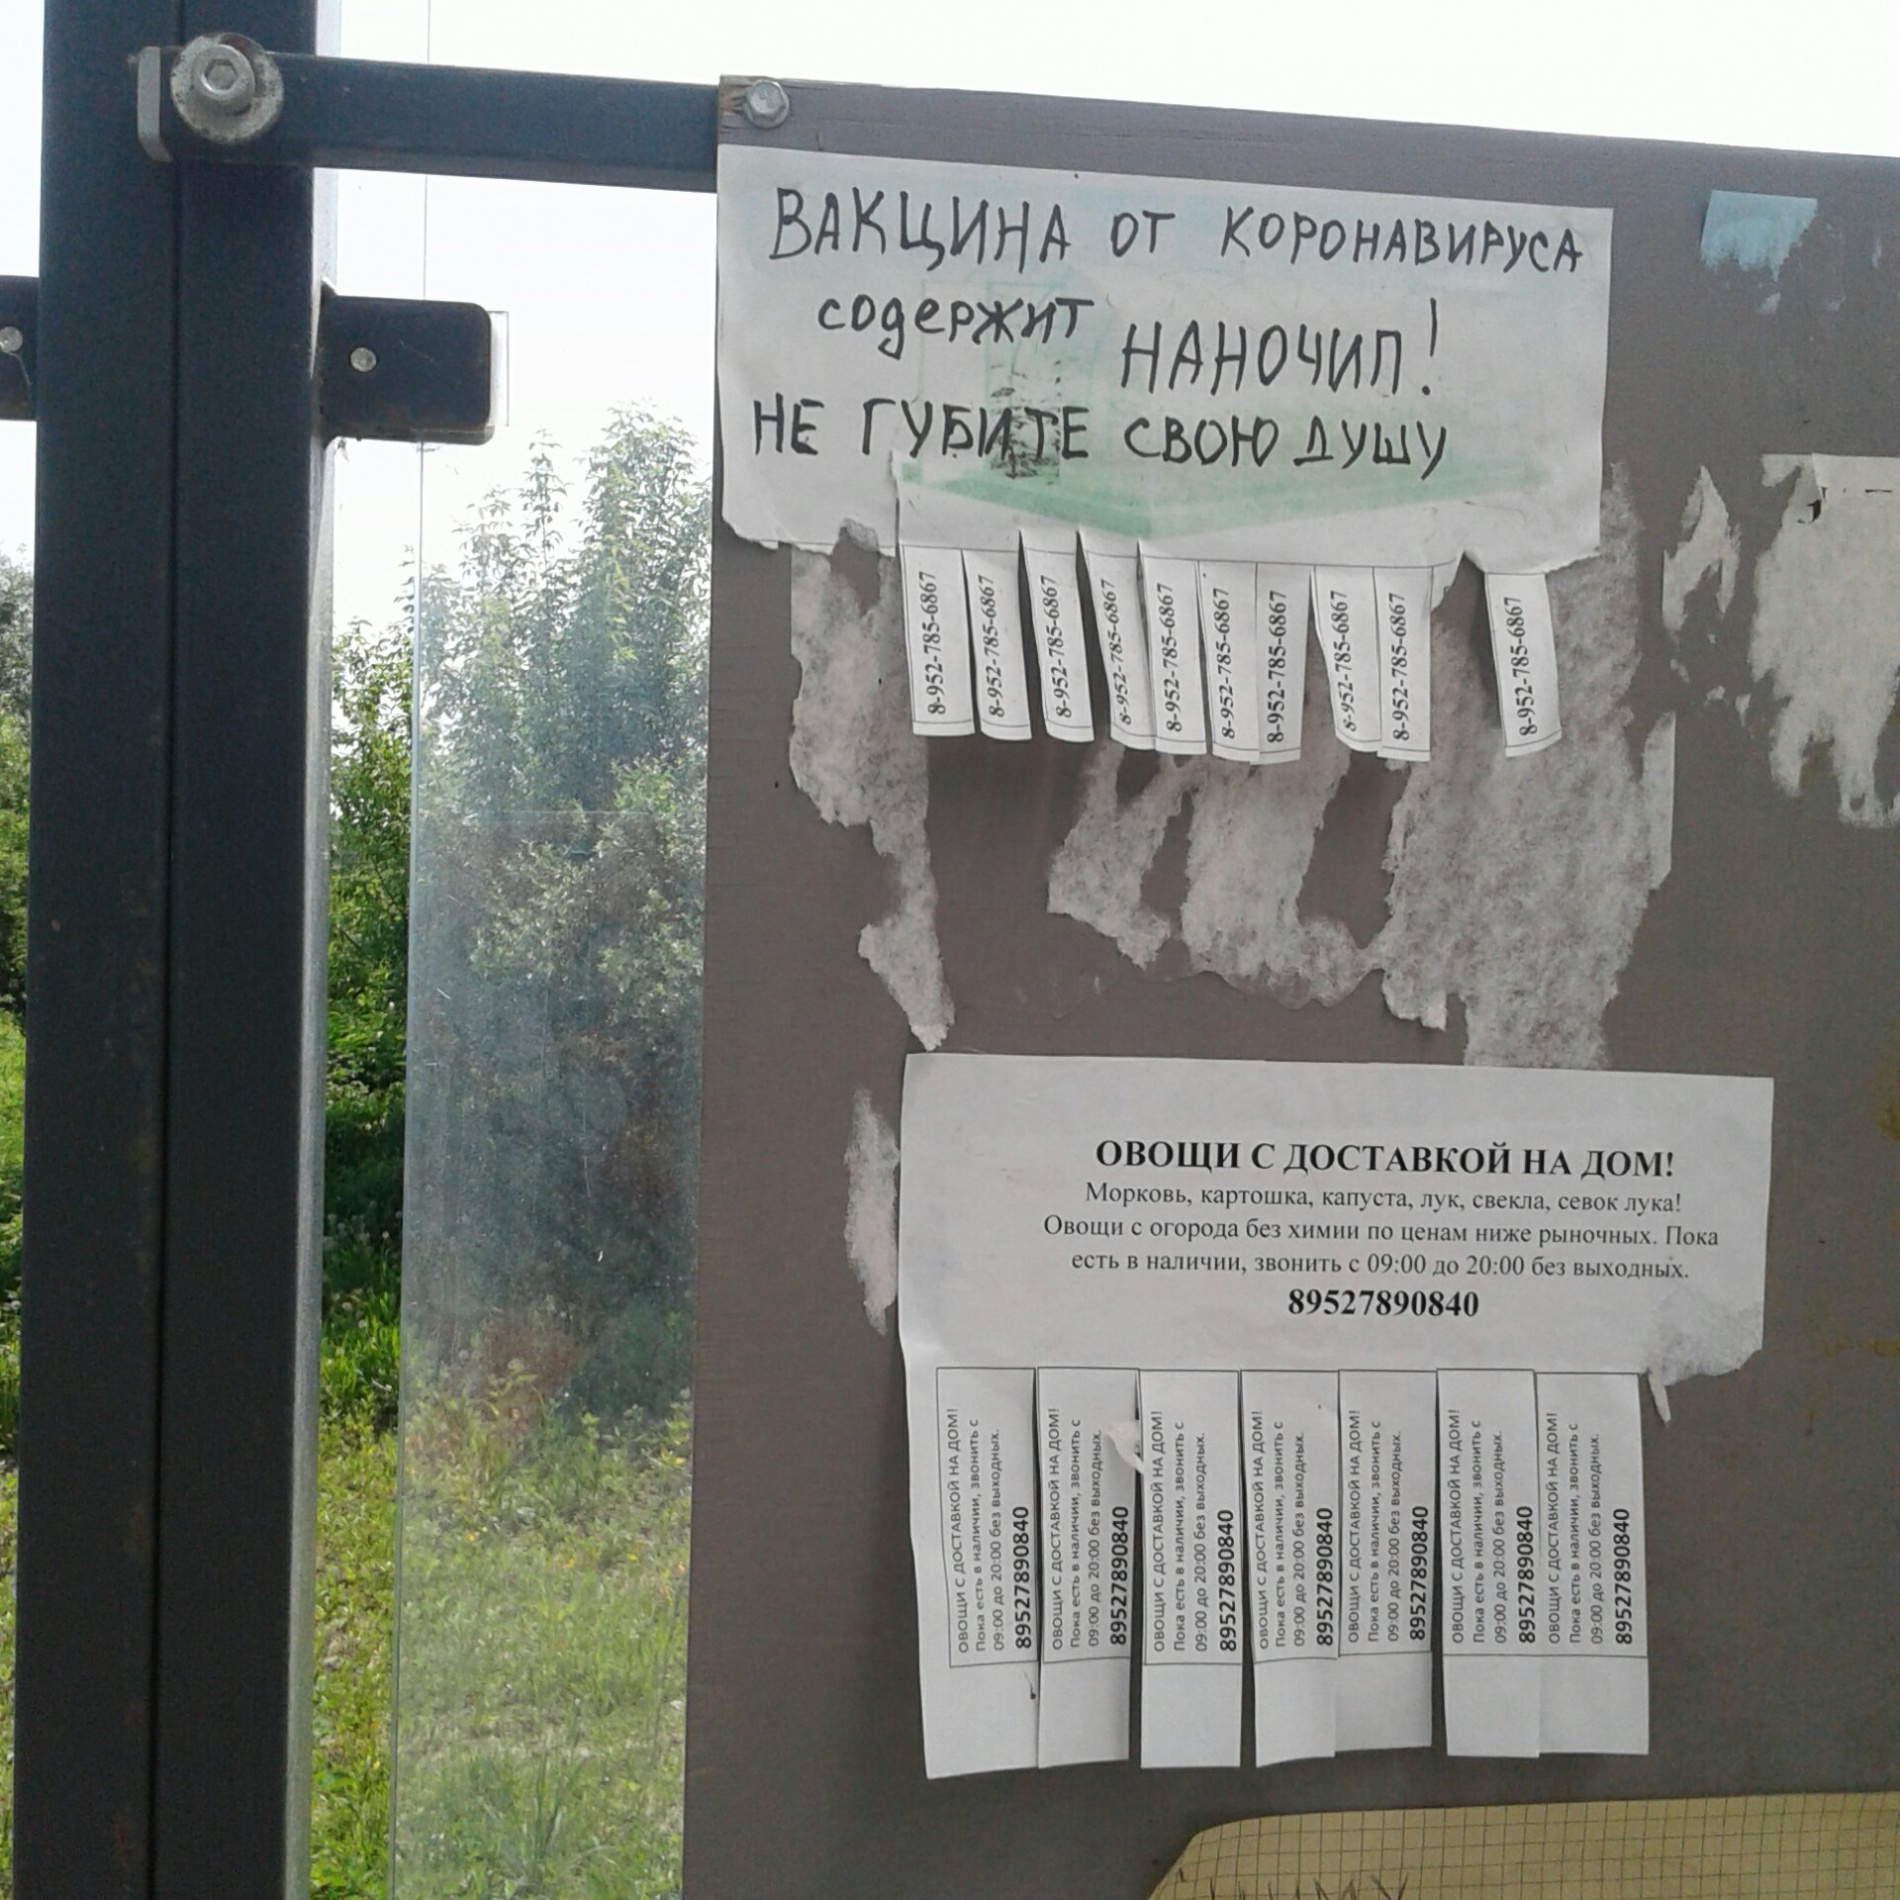 ВАКЦИНА ОТ КОРОНАВИРУСА
содержит НАНОЧИП!
НЕ ГУБИТЕ СВОЮ ДУШУ
8-952-785-6867
8-952-785-6867
8-952-785-6867
8-952-785-6867
8-952-785-6867
8-952-785-6867
8-952-785-6867
8-952-785-6867
8-952-785-6867
8-952-785-6867
ОВОЩИ С ДОСТАВКОЙ НА ДОМ!
Морковь, картошка, капуста, лук, свекла, севок лука!
Овощи с огорода без химии по ценам ниже рыночных. Пока
есть в наличии, звонить с 09:00 до 20:00 без выходных.
89527890840
ОВОЩИ С ДОСТАВКОЙ НА ДОМ!
Пока есть в наличии, звонить с
09:00 до 20:00 без выходных.
89527890840
ОВОЩИ С ДОСТАВКОЙ НА ДОМ!
Пока есть в наличии, звонить с
09:00 до 20:00 без выходных.
89527890840
ОВОЩИ С ДОСТАВКОЙ НА ДОМ!
Пока есть в наличии, звонить с
09:00 до 20:00 без выходных.
89527890840
ОВОЩИ С ДОСТАВКОЙ НА ДОМ!
Пока есть в наличии, звонить с
09:00 до 20:00 без выходных.
89527890840
ОВОЩИ С ДОСТАВКОЙ НА ДОМ!
Пока есть в наличии, звонить с
09:00 до 20:00 без выходных.
89527890840
ОВОЩИ С ДОСТАВКОЙ НА ДОМ!
Пока есть в наличии, звонить с
09:00 до 20:00 без выходных.
89527890840
ОВОЩИ С ДОСТАВКОЙ НА ДОМ!
Пока есть в наличии, звонить с
09:00 до 20:00 без выходных.
89527890840